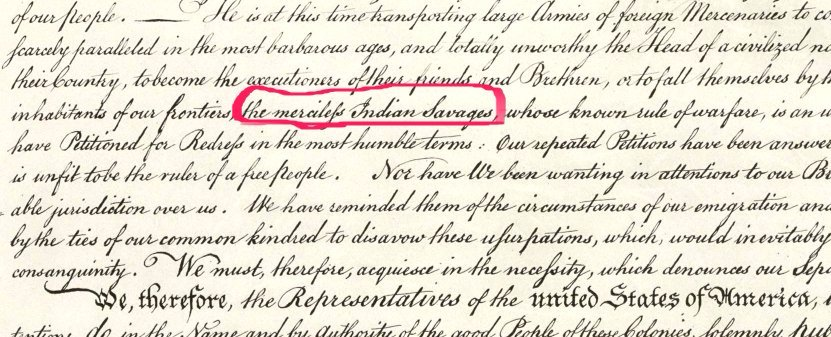 of our People. — He is at this time transporting large Armies of foreign Mercenaries to co
scarcely paralleled in the most barbarous ages, and totally unworthy the Head of a civilized na
their Country, to become the executioners of their friends and Brethren, or to fall themselves by h
inhabitants of our frontiers, the merciless Indian Savages, whose known rule of warfare, is an u
have Petitioned for Redress in the most humble terms: Our repeated Petitions have been answer
is unfit to be the ruler of a free People. Nor have We been wanting in attentions to our Br
able jurisdiction over us. We have reminded them of the circumstances of our emigration and
by the ties of our common kindred to disavow these usurpations, which, would inevitably
consanguinity. We must, therefore, acquiesce in the necessity, which denounces our Sepa
We, therefore, the Representatives of the united States of America, i
tentions, do, in the Name, and by Authority of the good People of these Colonies, solemnly pub